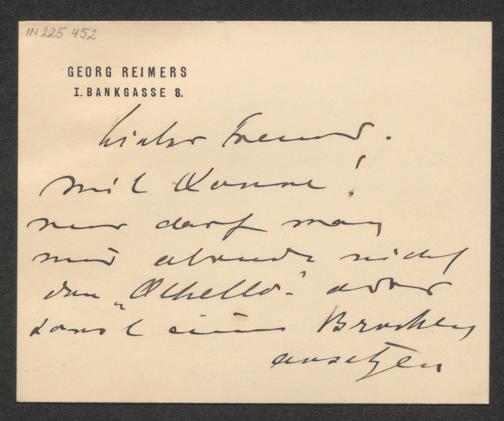 IN 225 452
GEORG REIMERS
I. BANKGASSE 8.
Lieber Freund.
Mit Wonne!
nur darf man
mir abends nicht
den „Othello“ oder
sonst einen Brocken
ansetzen